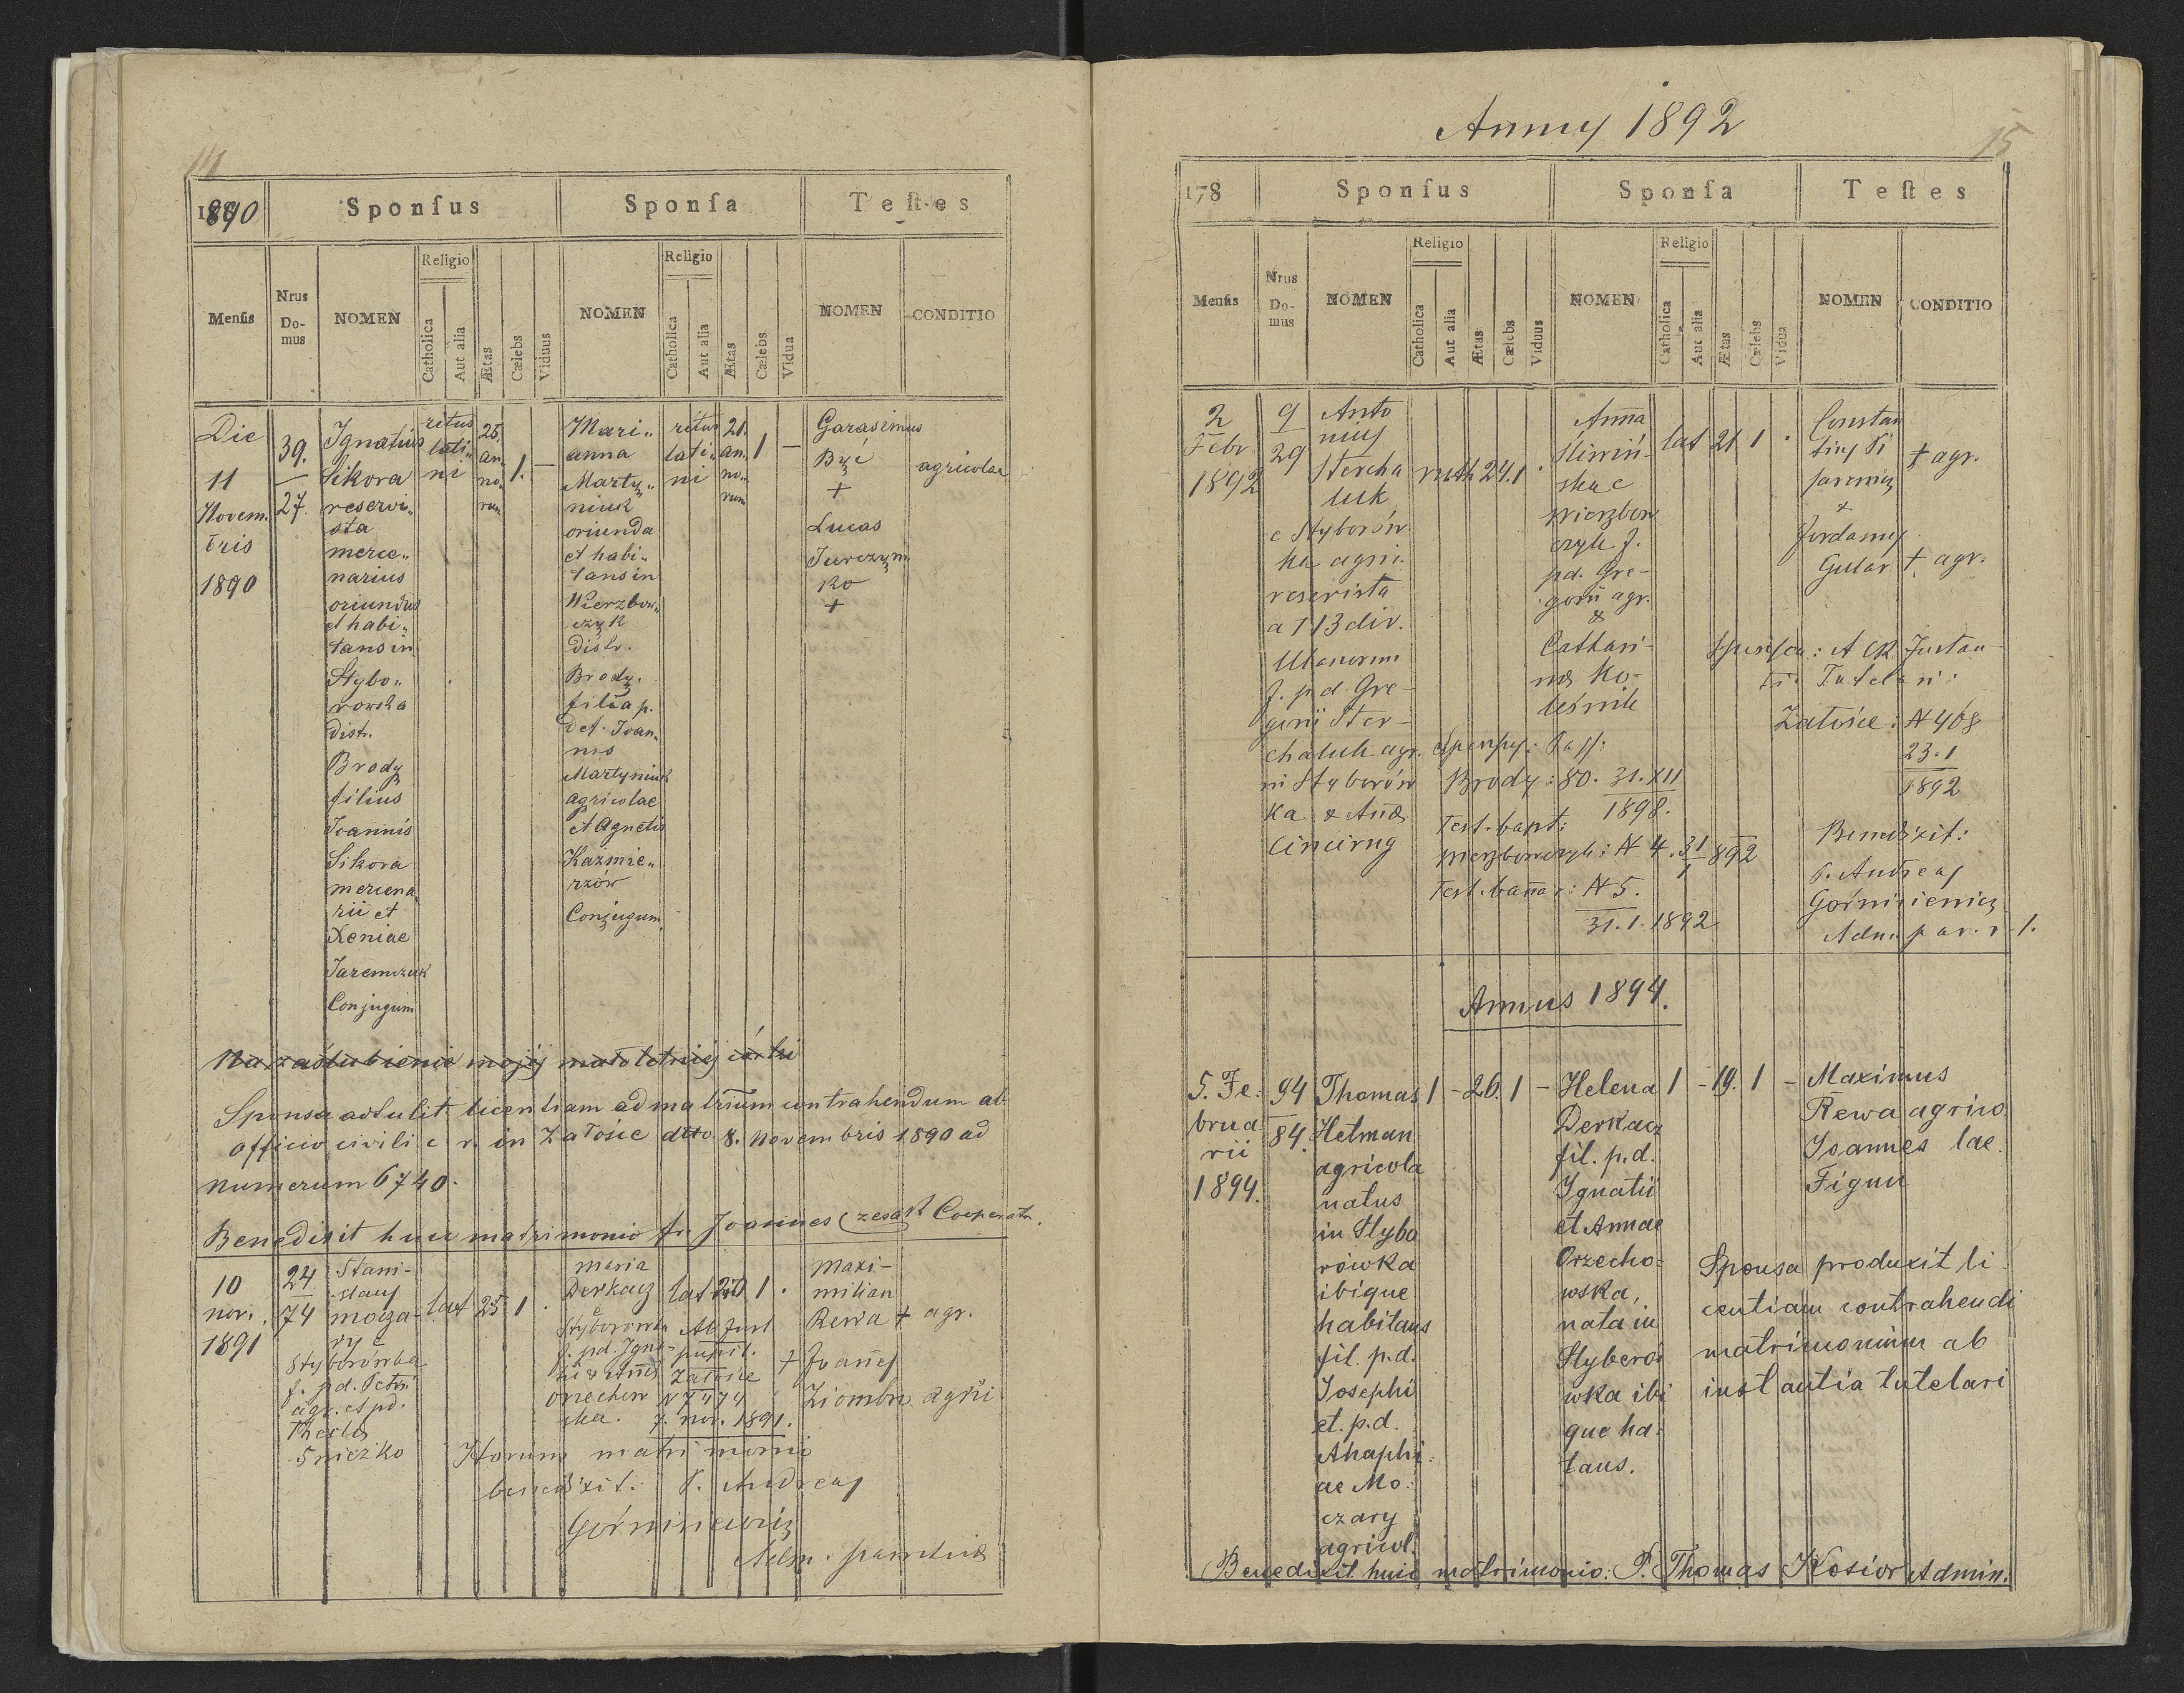 14
1890
Sponſus
Sponſa
Teſtes
Menſis
Nrus Do-mus
NOMEN
Religio
Catholica
Aut alia
Ætas
Cælebs
Viduus
NOMEN
Religio
Catholica
Aut alia
Ætas
Cælebs
Vidua
NOMEN
CONDITIO
Die
11
Novem.
bris
1890
39.
27.
Ignatius
Sikora
reservi„
sta
merce„
narius
oriundus
et habi„
tans in
Stybo„
rowka
distr.
Brody
filius
Joannis
Sikora
mercena
rii et
Xeniae
Jaremczuk
Conjugum
ritus
lati„
ni
25.
an„
no„
rum
1.
—
Mari„
anna
Marty„
niuk
oriunda
et habi„
tans in
Wierzbow„
czyk
distr.
Brody.
filia p.
def. Joan„
nis
Martyniuk
agricolae
et Agnetis
Kaźmie„
rzów
Conjugum.
ritus
lati„
ni
21.
an„
no„
rum
1
—
Garasimus
Być
+
Lucas
Jurczyn
ko
+
agricolae
Na zaślubienie mojéj małoletniéj córki
Sponsa adtulit licentiam ad matrium contrahendum ab
officio civili c. r. in Załośce dtto 8. Novembris 1890 ad
numerum 6740.
Benedixit huic matrimonio fr. Joannes Czesak Cooperatr.
10
nov.
1891
24
74
Stani-
slaus
mocza-
ry e
Styborówka
f. pd. Petri
agr. et pd.
Theclæ
Snieżko
lat 25 1 .
Maria
Derkacz
e
Styborówka
f. pd. Igna-
tii & Annæ
Orzechow
ska.
lat 20 1 .
Ab Just.
pupil.
Załośce
N 7474
7. nov. 1891.
Maxi-
milian
Rewa + agr.
+ Joannes
Ziombra agri
Horum matrimonio
benedixit: P. Andreas
Górnisiewicz
Adm. parochiæ
Annus 1892
15
178
Sponſus
Sponſa
Teſtes
Menſis
Nrus Do-mus
NOMEN
Religio
Catholica
Aut alia
Ætas
Cælebs
Viduus
NOMEN
Religio
Catholica
Aut alia
Ætas
Cælebs
Vidua
NOMEN
CONDITIO
2
Febr
1892
9
29
Anto
nius
Stercha
luk
e Styborów
ka agri.
reservista
a 13 div.
Ulanorum
f. pd. Gre-
gorii Ster-
chaluk agr.
in Styborów
ka & Annæ
ruth 24. 1 .
Anna
Śliwiń-
ska e
Wierzbow
czyk f.
pd. Gre-
gorii agr.
&
Cathari-
næ Ko-
leśnik
lat 21 1 .
Constan
tius
&
Jordanus
Gular
+ agr.
+ agr.
Sponsa: A CR Justan-
tia Tutelari:
Załośce: N 468
23. 1
1892
Sponsus: Pass:
Brody: 80. 31. XII
1898.
Test. bapt:
Wierzbowczyk: N 4. 31/1 892
Test. bannor: N 5.
31. 1. 1892
Benedixit:
P. Andreas
Górnisiewicz
Adm. par. r. l.
Annus 1894.
5. Fe:
brua
rii
1894.
94
84.
Thomas
Hetman
agricola
natus
in Stybo
rówka
ibique
habitans
fil. p.d.
Josephi
et. p.d.
Ahaphi:
ae Mo:
czary
agricol.
1 - 26. 1 -
Helena
Derkacz
fil. p.d.
Ignatii
et Annae
Orzecho-
wska,
nata in
Styboró
wka ibi
que ha:
tans.
1 - 19. 1 -
Maximus
Rewa agrico
Joannes lae.
Figun
Sponsa produxit li:
centiam contrahendi
matrimonium ab
instantia tutelari
Benedixit huic matrimonio: P. Thomas Kosior Admin.